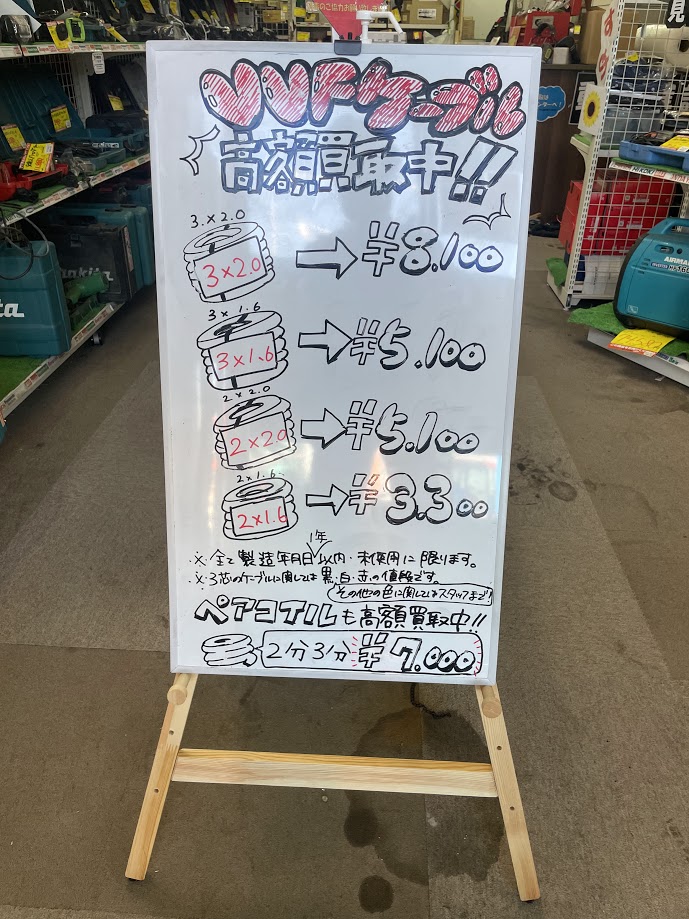 VVFケーブル
高額買取中!!
3×2.0
3×2.0 → ¥8.100
3×1.6
3×1.6 → ¥5.100
2×2.0
2×2.0 → ¥5.100
2×1.6
2×1.6 → ¥3.300
1年
※全て製造年月日以内・未使用に限ります。
※3芯のケーブルに関しては黒・白・赤の値段です。
その他の色に関してはスタッフまで!
ペアコイルも高額買取中!!
2分3分 ¥7.000
makita
AIRMAN
HiKOKI
見